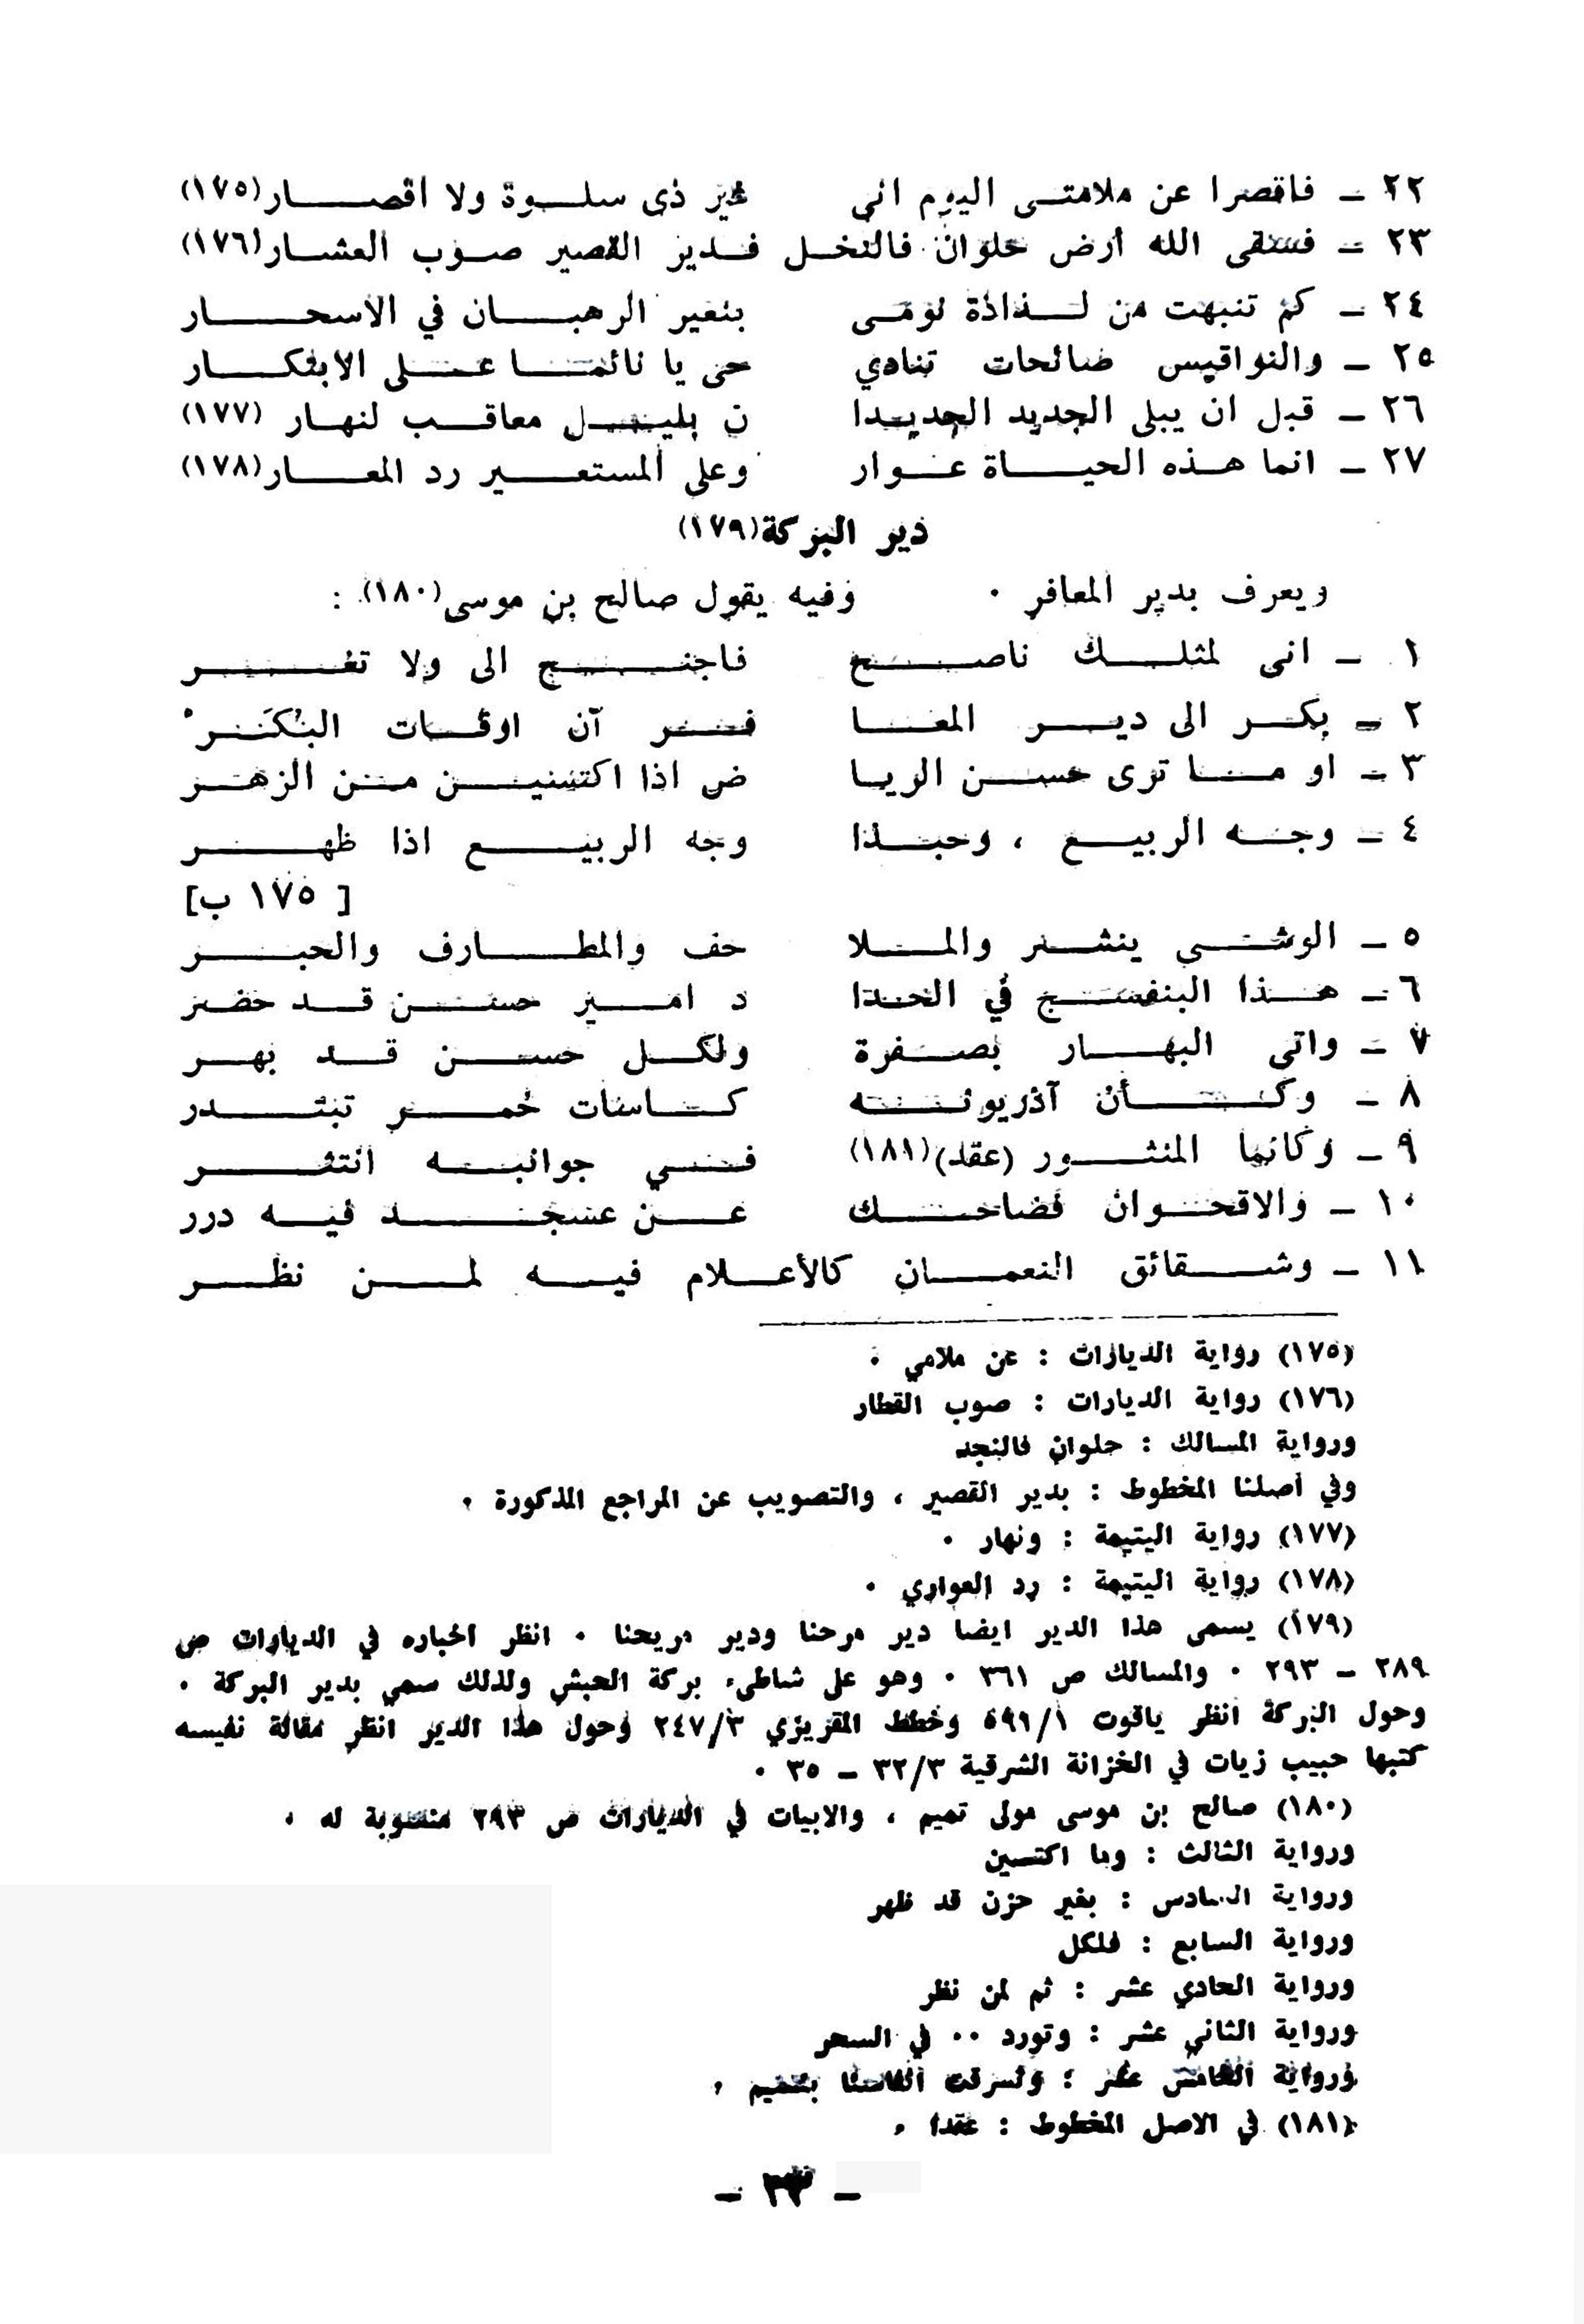 ٢٢ ـ فاقصرا عن ملامتى اليوم انى غير ذى سلوة ولا اقصار(١٧٥)
٢٣ ـ فسقى الله أرض حلوان فالنخل فدير القصير صوب العشار(١٧٦)
٢٤ ـ كم تنبهت من لذاذة نومى بنعير الرهبان في الاسحار
٢٥ ـ والنواقيس صائحات تنادي حى يا نائما على الابتكار
٢٦ ـ قبل ان يبلى الجديد الجديدا ن بليل معاقب لنهار (١٧٧)
٢٧ ـ انما هذه الحياة عوار وعلى المستعير رد المعار(١٧٨)
دير البركة(١٧٩)
ويعرف بدير المعافر . وفيه يقول صالح بن موسى(١٨٠) :
١ ـ انى لمثلك ناصح فاجنح الى ولا تغر
٢ ـ بكر الى دير المعا فر آن اوقات البُكَرْ
٣ ـ او ما ترى حسن الريا ض اذا اكتسين من الزهر
٤ ـ وجه الربيع ، وحبذا وجه الربيع اذا ظهر
[ ١٧٥ ب]
٥ ـ الوشى ينشر والملا حف والمطارف والحبر
٦ ـ هذا البنفسج في الحدا د امير حسن قد حضر
٧ ـ واتى البهار بصفرة ولكل حسن قد بهر
٨ ـ وكأن آذريونه كاسات خمر تبتدر
٩ ـ وكانما المنثور (عقد)(١٨١) في جوانبه انتثر
١٠ ـ والاقحوان فضاحك عن عسجد فيه درر
١١ ـ وشقائق النعمان كالأعلام فيه لمن نظر
(١٧٥) رواية الديارات : عن ملامي .
(١٧٦) رواية الديارات : صوب القطار
ورواية المسالك : حلوان فالنجد
وفي أصلنا المخطوط : بدير القصير ، والتصويب عن المراجع المذكورة .
(١٧٧) رواية اليتيمة : ونهار .
(١٧٨) رواية اليتيمة : رد العواري .
(١٧٩) يسمى هذا الدير ايضا دير مرحنا ودير مريحنا . انظر اخباره في الديارات ص
٢٨٩ ـ ٢٩٣ . والمسالك ص ٣٦١ . وهو على شاطىء بركة الحبش ولذلك سمي بدير البركة .
وحول البركة انظر ياقوت ٥٩٩/١ وخطط المقريزي ٢٤٧/٣ وحول هذا الدير انظر مقالة نفيسه
كتبها حبيب زيات في الخزانة الشرقية ٣٢/٣ ـ ٣٥ .
(١٨٠) صالح بن موسى مولى تميم ، والابيات في الديارات ص ٢٩٣ منسوبة له .
ورواية الثالث : وما اكتسين
ورواية السادس : بغير حزن قد ظهر
ورواية السابع : فلكل
ورواية الحادي عشر : ثم لمن نظر
ورواية الثاني عشر : وتورد .. في السحر
ورواية الخامس عشر :
(١٨١) في الاصل المخطوط : عقدا .